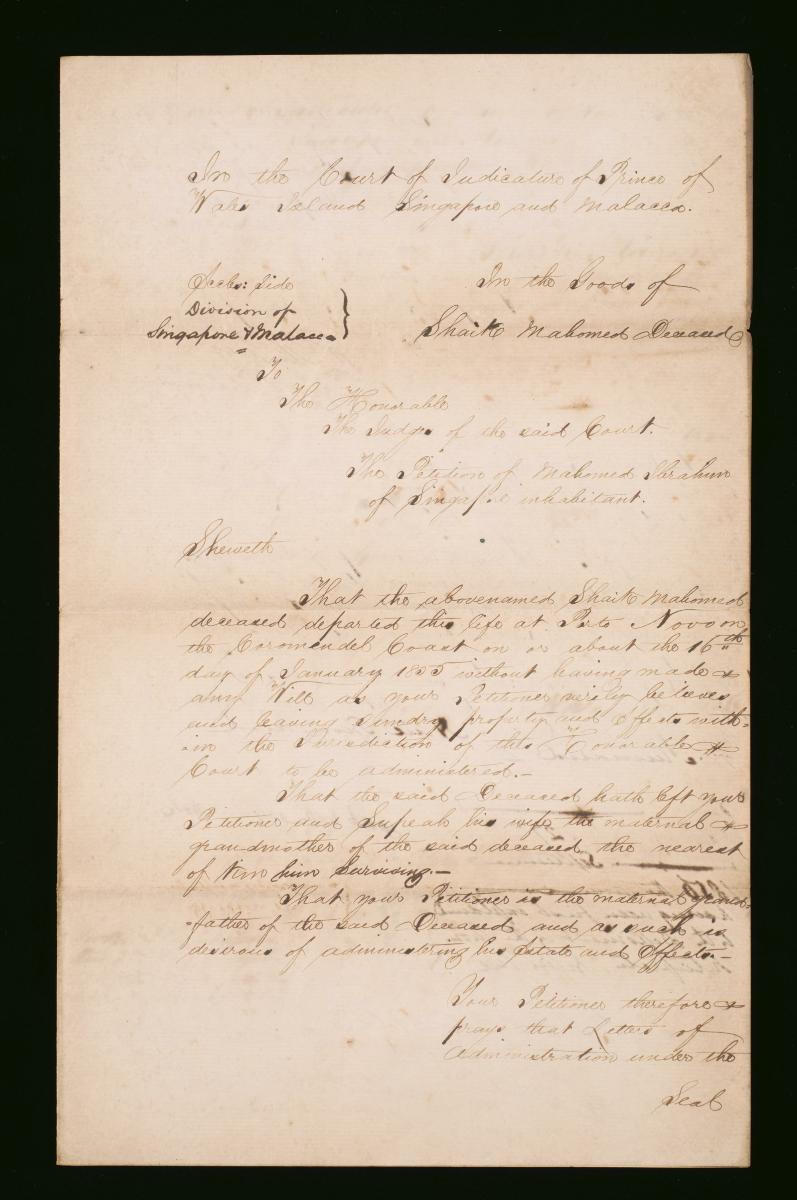 In the Court of Judicature of Prince of
Wales Island Singapore and Malacca.
Eccles: Side
Division of
Singapore & Malacca
In the Goods of
Shaik Mahomed Deceased
To
The Honorable
The Judges of the said Court.
The Petition of Mahomed Ibrahim
of Singapore inhabitant.
Sheweth
That the abovenamed Shaik Mahomed
deceased departed this life at Porto Novo on
the Coromendel Coast on or about the 16th
day of January 1855 without having made
any Will as your Petitioner verily believes
and leaving Sundry property and Effects with-
-in the Jurisdiction of this Honorable
Court to be administered.-
That the said Deceased hath left your
Petitioner and his wife the maternal
grandmother of the said deceased the nearest
of kin him Surviving.-
That your Petitioner is the maternal grand-
-father of the said Deceased and as such is
desirous of administering his Estate and Effects.-
Your Petitioner therefore
prays that Letters of
Administration under the
Seal